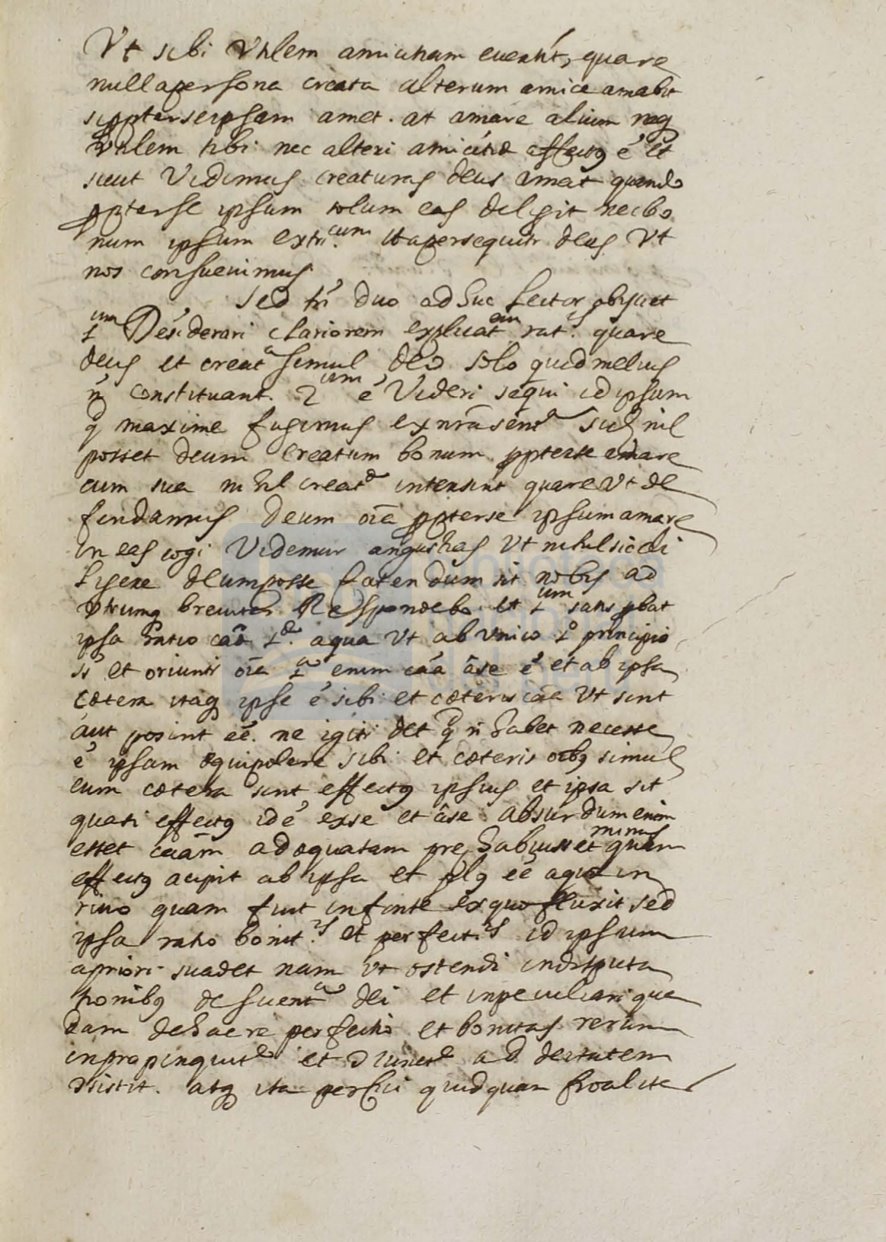 Vt sibi Vtilem amicitiam quare
nulla persona creata alterum amice amabit
ppterseipsam amet. at amare alium neq
Vtilem tibi nec alteri amicitiæ effectq é et
sicut Vidimus creaturas deus amat quando
ppterse ipsum solum eas deligit nec bo
num ipsum extri.cum ita persequitr deus Vt
nos consuevimus
Sed tñ duo adhuc Lector obijciet
1.um Desiderari clariorem explicat.em rat.is quare
deus et creat.a simul deo solo quid melius
ñ constituant. 2.um é Videri sequi id ipsum
q maxime fugimus ex nrã sent.a nil
posset deum creatum bonum ppterse amare
cum sua nihil creat.a intersint quare Vt de
fendamus Deum oiã ppterse ipsum amare
in eas cogi Videmur angustias Vt nihil
ligere deum posse fatendum sit nobis ad
Vtrumq breviter Respondebo et 1.um satis pbat
ipsa ratio 1.æ a qua Vt ab Vnico 1.o principio
st et oriuntr oiã 1.a enim cãa áse é et ab ipsa
cætera itaq ipse é sibi et cæteris Vt sint
aut posint eé. ne igitr det q ñ habet necesse
é ipsam æquipolere sibi et cæteris oibq simul
cum cætera sint effectq ipsius et ipsa sit
quasi effectq idé exse et áse. absurdum enim
esset cãam adæquatam præhabuisset minus quam
effectq acipit ab ipsa et plq eé aquæ in
rivo quam fuit in fonte ex quo fluxit sed
ipsa ratio bonit.is et perfect.is id ipsum
apriori suadet nam Vt ostendi in disputa
tionibq de dei et in peculiari qua
dam de hac re perfectio et bonitas rerum
in propinquit.e et ad deitatem
et